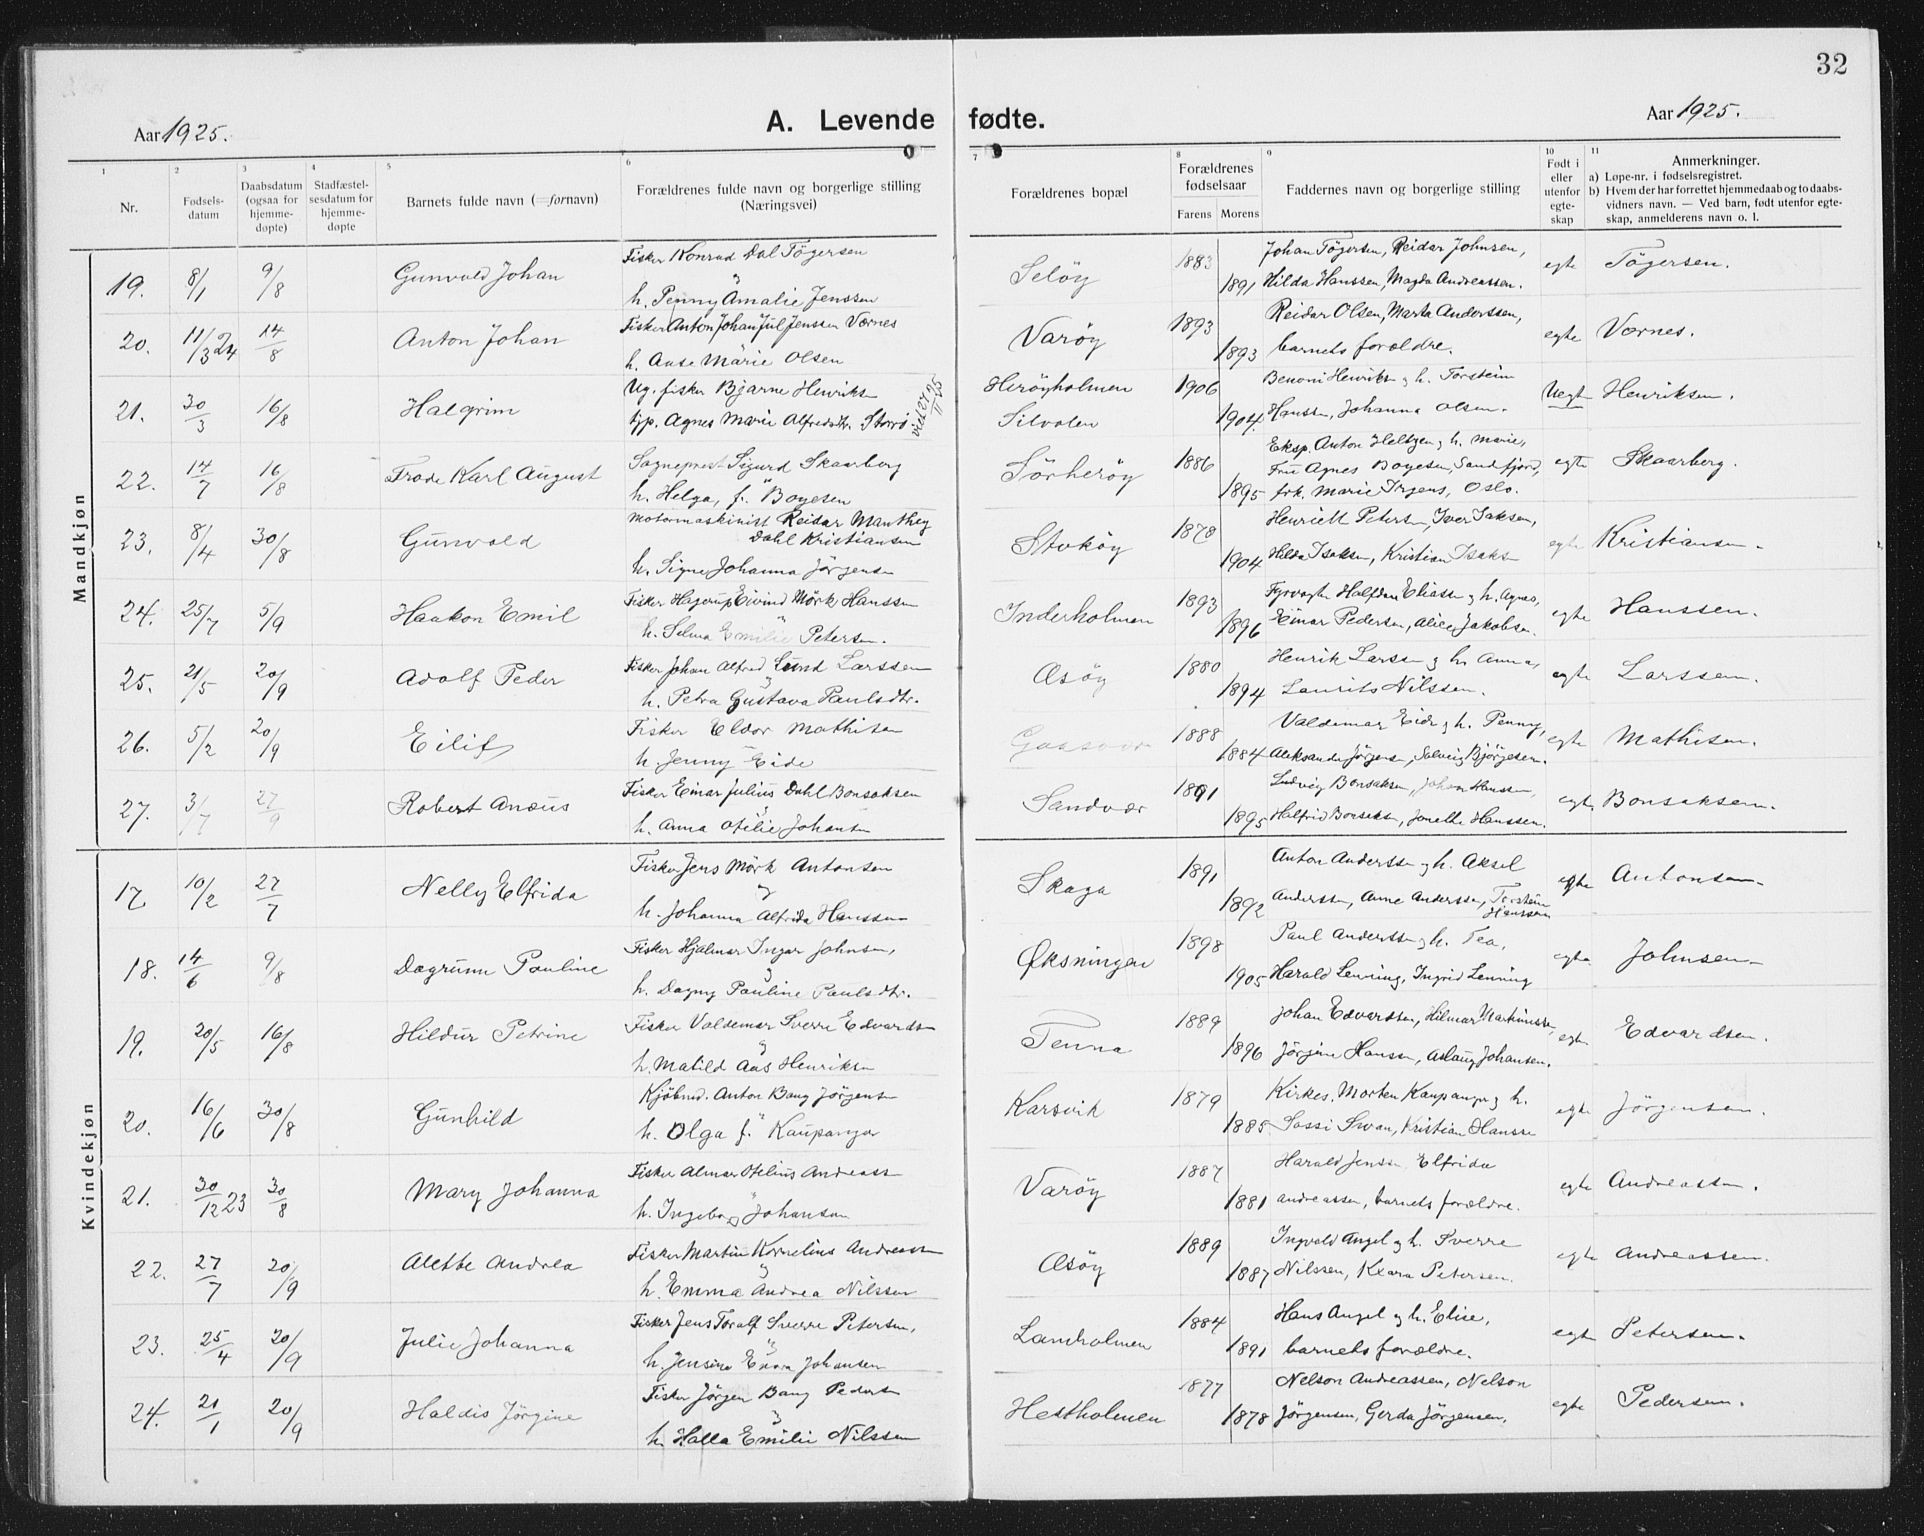 32
Aar 1925.
A. Levende fødte.
Aar 1925.
1 2 3 4 5 6 7 8 9 10 11
Nr.
Fødsels-
datum
Daabsdatum
(ogsaa for
hjemme-
døpte)
Stadfæstel-
sesdatum for
hjemme-
døpte
Barnets fulde navn (=fornavn)
Forældrenes fulde navn og borgerlige stilling
(Næringsvei)
Forældrenes bopæl
Forældrenes
fødselsaar
Farens Morens
Faddernes navn og borgerlige stilling
Født i
eller
utenfor
egte-
skap
Anmerkninger.
a) Løpe-nr. i fødselsregistret.
b) Hvem der har forrettet hjemmedaab og to daabs-
vidners navn. — Ved barn, født utenfor egte-
skap, anmelderens navn o. l.
Mandkjøn
19. 8/1 9/8 Gunvald Johan
Fisker Konrad Dal Tögersen
h. Penny Amalie Jenssen
Selöy 1883 1891
Johan Tögersen, Reidar Johnsen,
Hilda Hanssen, Magda Andreassen.
egte Tögersen.
20. 11/3 24 14/8 Anton Johan
Fisker Anton Johan Jul Jenssen Værnes
h. Anse Marie Olsen
Varöy 1893 1893
Reidar Olsen, Marta Anderssen,
barnets forældre.
egte Værnes.
21. 30/3 16/8 Halgrim
Ug. fisker Bjarne Henriksn
tjp. Agnes Marie Alfredsdtr. Storrö
viet 27/11 25
Heröyholmen
Silvalen
1906 1904.
Benoni Henriksn g h. Torstein
Hanssen, Johanna Olsen.
Uegt Henriksen.
22. 14/7 16/8 Frode Karl August
Sogneprest Sigurd Skaarberg
h. Helga, f. Boyesen
Sörheröy 1886 1895
Eksp. Anton Heltzen g h. Marie,
Fru Agnes Boyesen, Sandfjord,
frk. Marie Irgens, Oslo.
egte Skaarberg.
23. 8/4 30/8 Gunvald
Motormaskinist Reidar Manthey
Dahl Kristiansen
h. Signe Johanna Jörgensn
Stoköy 1878 1904
Henriett Petersn, Iver Isaksen,
Hilda Isaksen, Kristian Isaksn
egte Kristiansen.
24. 25/7 5/9 Haakon Emil
Fisker Hagerup Eivind Mörk Hanssen
h. Selma Emilie Petersen.
Inderholmen 1893 1896
Fyrvogter Halfdan Eliassn g h. Agnes,
Einar Pedersen, Alice Jakobsen.
egte Hanssen.
25. 21/5 20/9 Adolf Peder
Fisker Johan Alfred Lund Larssen
h. Petra Gustava Paulsdtr.
Æsöy 1880 1894
Henrik Larssn g h. Anna,
Laurits Nilssen.
egte Larssen.
26. 5/2 20/9 Eilif
Fisker Eldor Mathisen
h. Jenny Eide
1888 1884
Valdemar Eide g h. Penny,
Aleksander Jörgensn, Solveig Bjørgesen.
egte Mathisen.
27. 3/7 27/9 Robert Anæus
Fisker Einar Julius Dahl Bonsaksen
h. Anna Otilie Johansn
Sandvær 1891 1895
Ludvig Bonsaksen, Johan Hanssen,
Halfrid Bonsaksn, Jenette Hanssen.
egte Bonsaksen.
Kvindekjøn
17. 10/2 27/7 Nelly Elfrida
Fisker Jens Mörk Antonsen
h. Johanna Alfrida Hanssen
Skaga 1891 1892
Anton Anderssn g h. Aksel
Anderssn, Anne Anderssn, Torstein
Hanssen
egte Antonsen.
18. 14/6 9/8 Dagrunn Pauline
Fisker Hjalmar Ingar Johnsen,
h. Dagny Pauline Paulsdtr.
Øksningen 1898 1905
Paul Anderssn g h. Tea,
Harald Lenning, Ingrid Lenning
egte Johnsen.
19. 20/5 16/8 Hildur Petrine
Fisker Valdemar Sverre Edvardsn
h. Matild Aas Henriksen
Tenna 1889 1896
Johan Edvardsen, Hilmar Martinussn,
Jörgine Hanssn, Aslaug Johansen.
egte Edvardsen.
20. 16/6 30/8 Gunhild
Kjöbmd. Anton Bang Jörgensn
h. Olga f. Kaupanger
Karsvik 1879 1885
Kirkes. Morten Kaupanger g h.
Sassi Swan, Kristian Hanssn
egte Jörgensen.
21. 30/12 23 30/8 Mary Johanna
Fisker Almar Otelius Andreassn
h. Ingeborg Johansen
Varöy 1887 1881
Harald Jenssn Elfrida
Andreassen, barnets forældre.
egte Andreassen.
22. 27/7 20/9 Alette Andrea
Fisker Martin Kornelius Andreassn
h. Emma Andrea Nilssen
Æsöy 1889 1887
Ingvald Angel g h. Sverre
Nilssen, Klara Petersen.
egte Andreassen.
23. 25/4 20/9 Julie Johanna
Fisker Jens Toralf Sverre Petersen,
h. Jensine Enora Johansen
Lamholmen 1884 1891
Hans Angel g h. Elise,
barnets forældre.
egte Petersen.
24. 21/1 20/9 Haldis Jörgine
Fisker Jörgen Bang Pedersn
h. Halla Emilie Nilssen
Hestholmen 1877 1878
Nelson Andreassen, Nelson
Jörgensen, Gerda Jörgensen,
egte Pedersen.